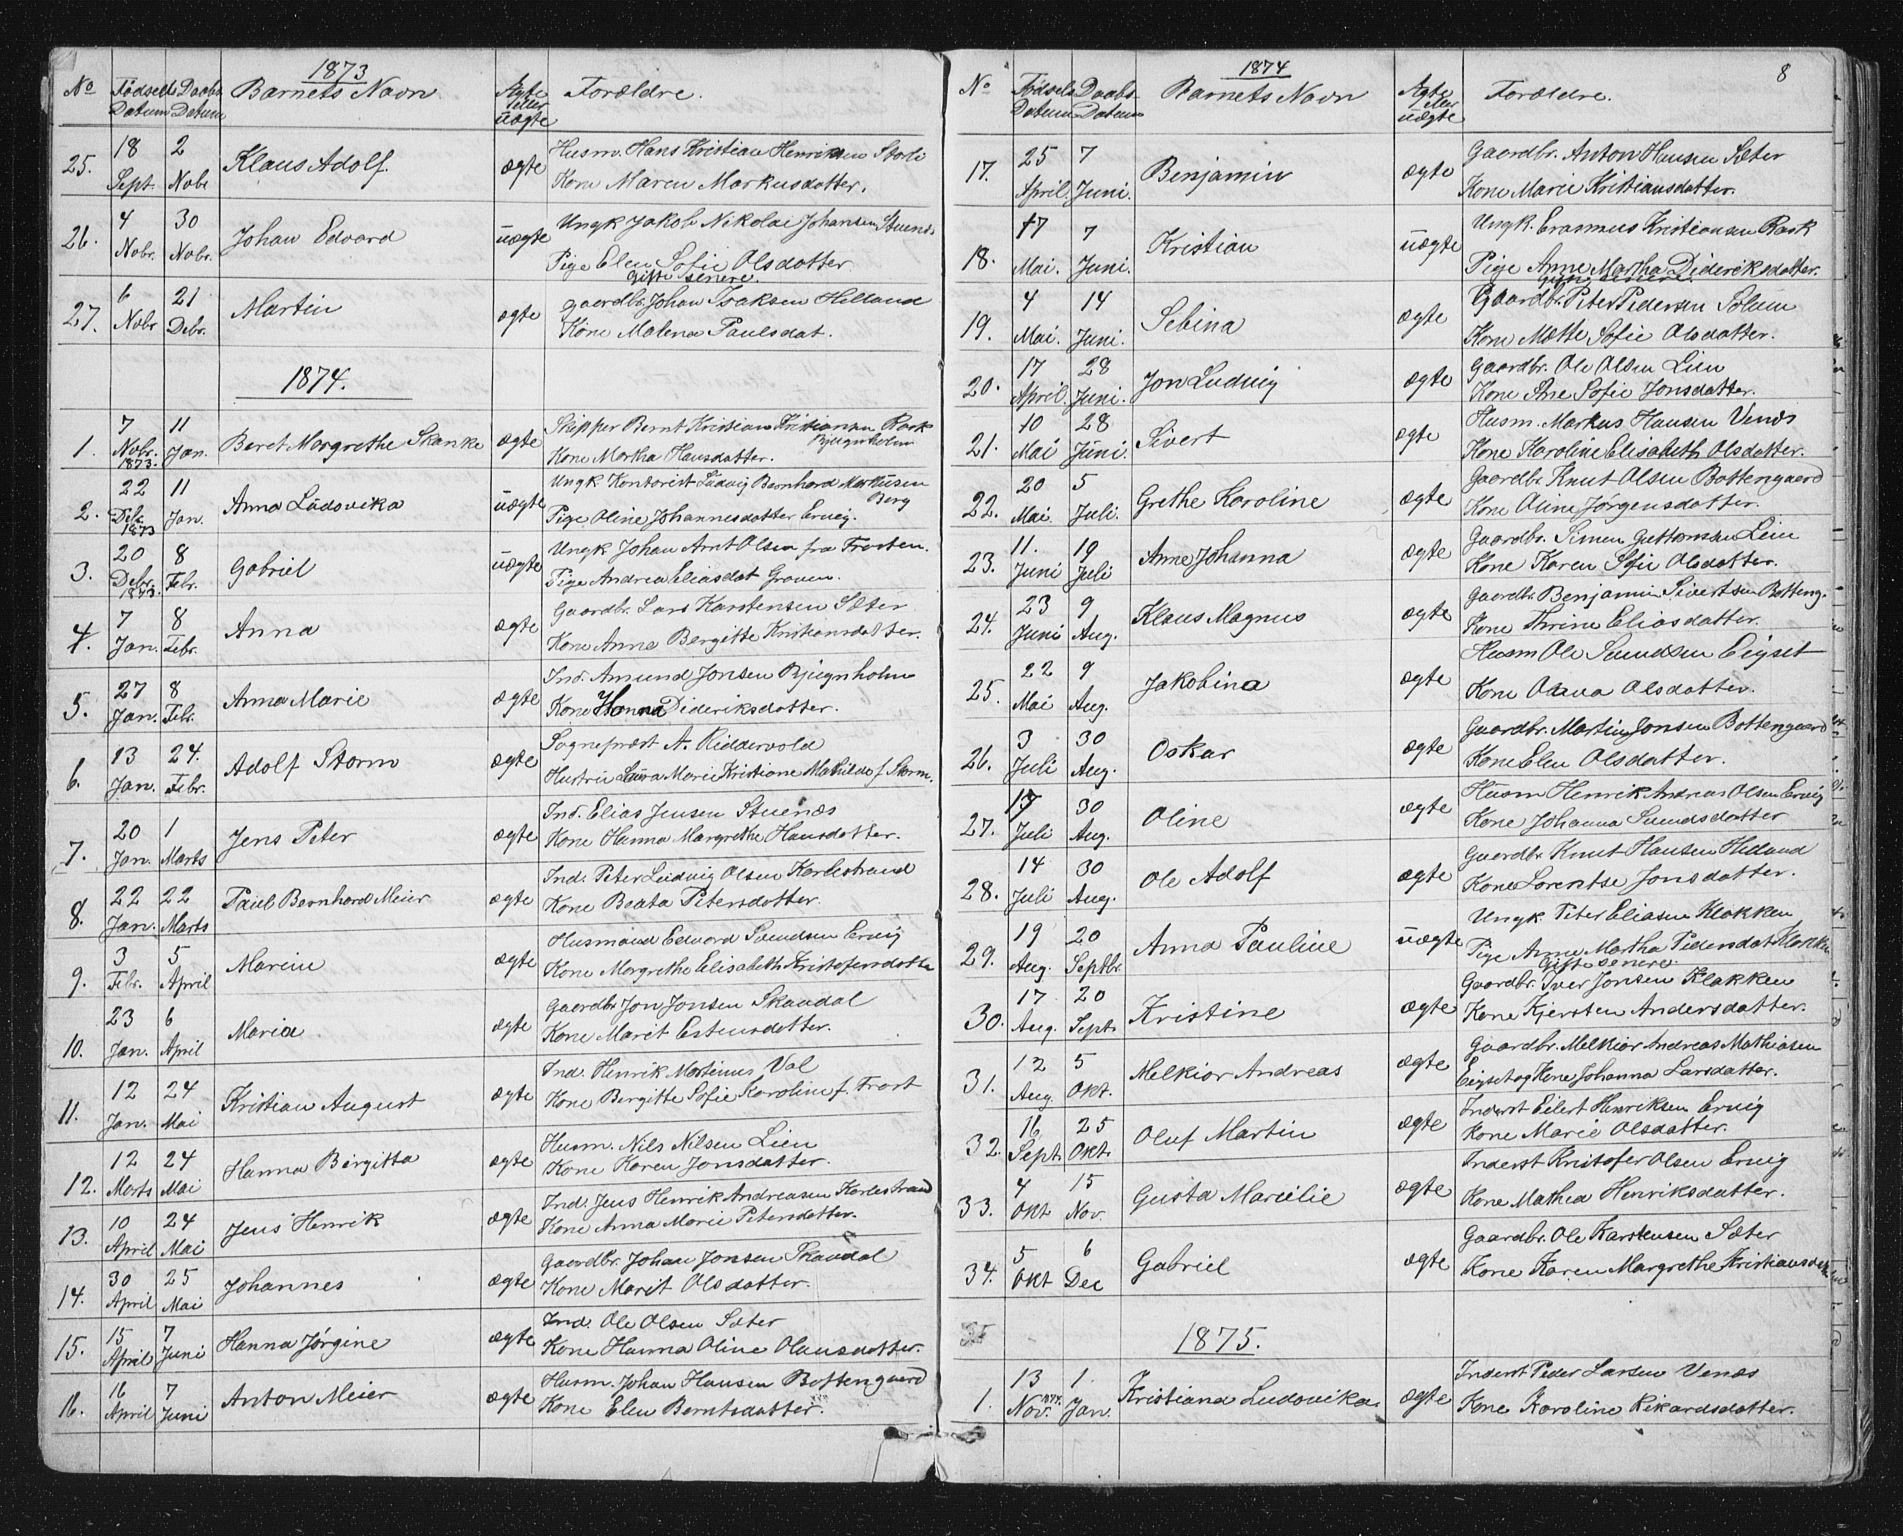 1873
No Fødsels Datum Daabs Datum Barnets Navn. Ægte eller uægte Forældre.
25. 18 Sept. 2 Nobr Klaus Adolf. ægte Husm. Hans Kristian Henriksen Storli
Kone Maren Markusdatter.
26. 4 Nobr. 30 Nobr. Johan Edvard uægte Ungk Jakob Nikolai Johansen Stuenæs
Pige Elen Sofie Olsdatter
gifte senere.
27. 6 Nobr 21 Debr. Martin ægte gaardbr. Johan Isaksen Helland
Kone Malena Paulsdat.
1874.
1. 7 Nobr. 1873. 11 Jan. Beret Margrethe Skanke ægte Skipper Bernt Kristian Kristiansen Rask
Bjugnholm
Kone Martha Hansdatter.
2. 22 Debr 1873 11 Jan. Anna Ludovika uægte Ungk Kontorist Ludvig Bernhard Markusen
Berg
Pige Oline Johannesdatter Ervig.
3. 20 Debr. 1873. 8 Febr. Gabriel uægte Ungk Johan Arnt Olsen fra Frosten.
Pige Andrea Eliasdat Graven.
4. 7 Jan. 8 Febr. Anna ægte Gaardbr. Lars Karstensen Sæter
Kone Anne Bergitte Kristiansdatter.
5. 27 Jan. 8 Febr. Anna Marie ægte Ind. Amund Jonsen Bjugnholm
Kone Hanna Dideriksdatter.
6. 13 Jan. 24. Febr. Adolf Storm ægte Sogneprest A. Riddervold
Hustru Laura Marie Kristiane Mathilde f. Storm.
7. 20 Jan. 1 Marts Jens Peter ægte Ind. Elias Jensen Stuenæs
Kone Hanna Margrethe Hansdatter.
8. 22 Jan. 22 Marts Paul Bernhard Meier ægte Ind. Peter Ludvig Olsen Karlestrand
Kone Beata Petersdatter.
9. 3 Febr. 5 April Marin ægte Husmand Edvard Svendsen Ervig
Kone Margrethe Elisabeth Kristofersdatter
10. 23 Jan. 6 April Maria ægte Gaardbr Jon Jonsen Skaudal
Kone Marit Estensdatter.
11. 12 Jan. 24 Mai Kristian August ægte Ind. Henrik Martinus Val
Kone Bergitte Sofie Karoline f. Frost
12. 12 Marts 24 Mai Hanna Birgitta ægte Husm. Nils Nilsen Lien
Kone Karen Jonsdatter.
13. 10 April 24 Mai Jens Henrik ægte Ind. Jens Henrik Andreasen Karlestrand
Kone Anna Marie Petersdatter.
14. 30 April 25 Mai Johannes ægte Gaardbr. Johan Jonsen Skaudal
Kone Marit Olsdatter.
15. 15 April 7 Juni Hanna Jørgine ægte Ind. Ole Olsen Sæter
Kone Hanna Oline Olausdatter.
16. 16 April 7 Juni Anton Meier ægte Husm. Johan Hansen Bottengaard
Kone Elen Berntsdatter.
8
1874
No Fødsels Datum Daabs Datum Barnets Navn Ægte eller uægte Forældre.
17. 25 April. 7 Juni. Benjamin ægte Gaardbr. Anton Hansen Sæter
Kone Marie Kristiansdatter.
18. 17 Mai. 7 Juni. Kristian uægte Ungk. Erasmus Kristiansen Rask
Pige Anne Martha Dideriksdatter.
gifte senere.
19. 4 Mai. 14 Juni. Sebina ægte Gaardbr. Peter Pedersen Solem
Kone Mætte Sofie Olsdatter.
20. 17 April. 28 Juni. Jon Ludvig ægte Gaardbr. Ole Olsen Lien
Kone Ane Sofie Jonsdatter.
21. 10 Mai 28 Juni. Sivert ægte Husm. Markus Hansen Venæs
Kone Karoline Elisabeth Olsdatter.
22. 20 Mai. 5 Juli. Grethe Karoline ægte Gaardbr Knut Olsen Bottengaard
Kone Oline Jørgensdatter.
23. 11. Juni 19 Juli Anne Johanna ægte Gaardbr. Simen Guttormsen Lein
Kone Karen Sofie Olsdatter.
24. 23 Juni 9 Aug. Klaus Magnus ægte Gaardbr Benjamin Sivertsen Botteng.
Kone Thrine Eliasdatter.
25. 22 Mai 9 Aug. Jakobina ægte Husm Ole Svendsen Eigset
Kone Olava Olsdatter.
26. 3 Juli 30 Aug. Oskar ægte Gaardbr. Martin Jonsen Bottengaard
Kone Elen Olsdatter.
27. Juli 30 Aug. Oline ægte Husm Henrik Andreas Olsen Ervig
Kone Johanna Svendsdatter
28. 14 Juli 30 Aug. Ole Adolf ægte Gaardbr Knut Hansen
Kone Lorentse Jonsdatter.
29. 19 Aug. 20 Septbr. Anna Pauline uægte Ungk. Peter Eliasen Klakken
Pige Anne Martha Pedersdat Klakken
Gifte senere.
30. 17 Aug. 20 Sept. Kristine ægte Gaardbr. Iver Jonsen Klakken
Kone Kjersten Andersdatter.
31. 12 Aug. 5 Okt. Melkior Andreas ægte Gaardbr. Melkior Andreas Mathiasen
Eigset og Kone Johanna Larsdatter.
32. 16 Sept. 25 Okt. Oluf Martin ægte Inderst Eilert Henriksen Ervig
Kone Marie Olsdatter.
33. 4 Okt 15 Nov. Gusta Marielie ægte Inderst Kristofer Olsen Ervig
Kone Mathea Henriksdatter.
34. 5 Okt 6 Dec Gabriel ægte Gaardbr. Ole Karstensen Sæter
Kone Karen Margrethe Kristiansdatr
1875.
1. 13 Nov. 1874. 1. Jan. Kristiana Ludovika. ægte Inderst Peder Larsen Venæs
Kone Karoline Rikardsdatter.